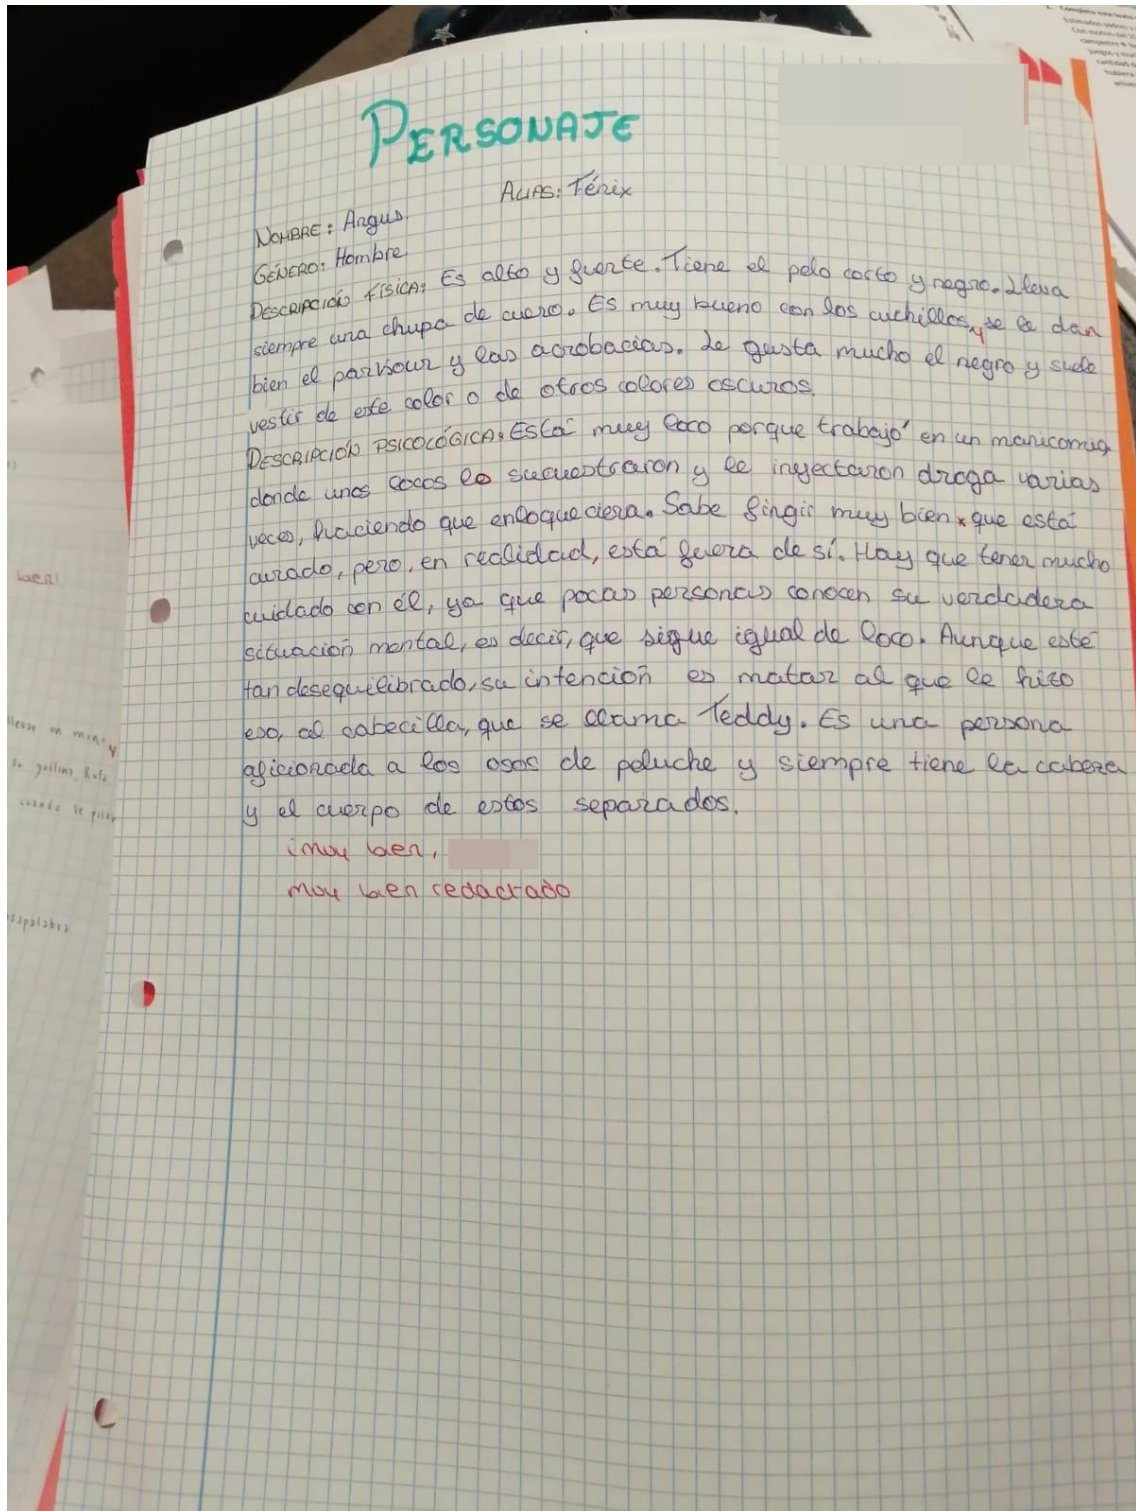 PERSONAJE
ALIAS: Fénix
NOMBRE: Angus
GÉNERO: Hombre
DESCRIPCIÓN FÍSICA: Es alto y fuerte. Tiene el pelo corto y negro. Lleva
siempre una chupa de cuero. Es muy bueno con los cuchillos, y se le dan
bien el parkour y las acrobacias. Le gusta mucho el negro y suele
vestir de este color o de otros colores oscuros.
DESCRIPCIÓN PSICOLÓGICA: Está muy loco porque trabajó en un manicomio,
donde unos locos lo secuestraron y le inyectaron droga varias
veces, haciendo que enloqueciera. Sabe fingir muy bien que está
curado, pero, en realidad, está fuera de sí. Hay que tener mucho
cuidado con él, ya que pocas personas conocen su verdadera
situación mental, es decir, que sigue igual de loco. Aunque esté
tan desequilibrado, su intención es matar al que le hizo
eso, al cabecilla, que se llama Teddy. Es una persona
aficionada a los osos de peluche y siempre tiene la cabeza
y el cuerpo de estos separados.
¡Muy bien,
muy bien redactado